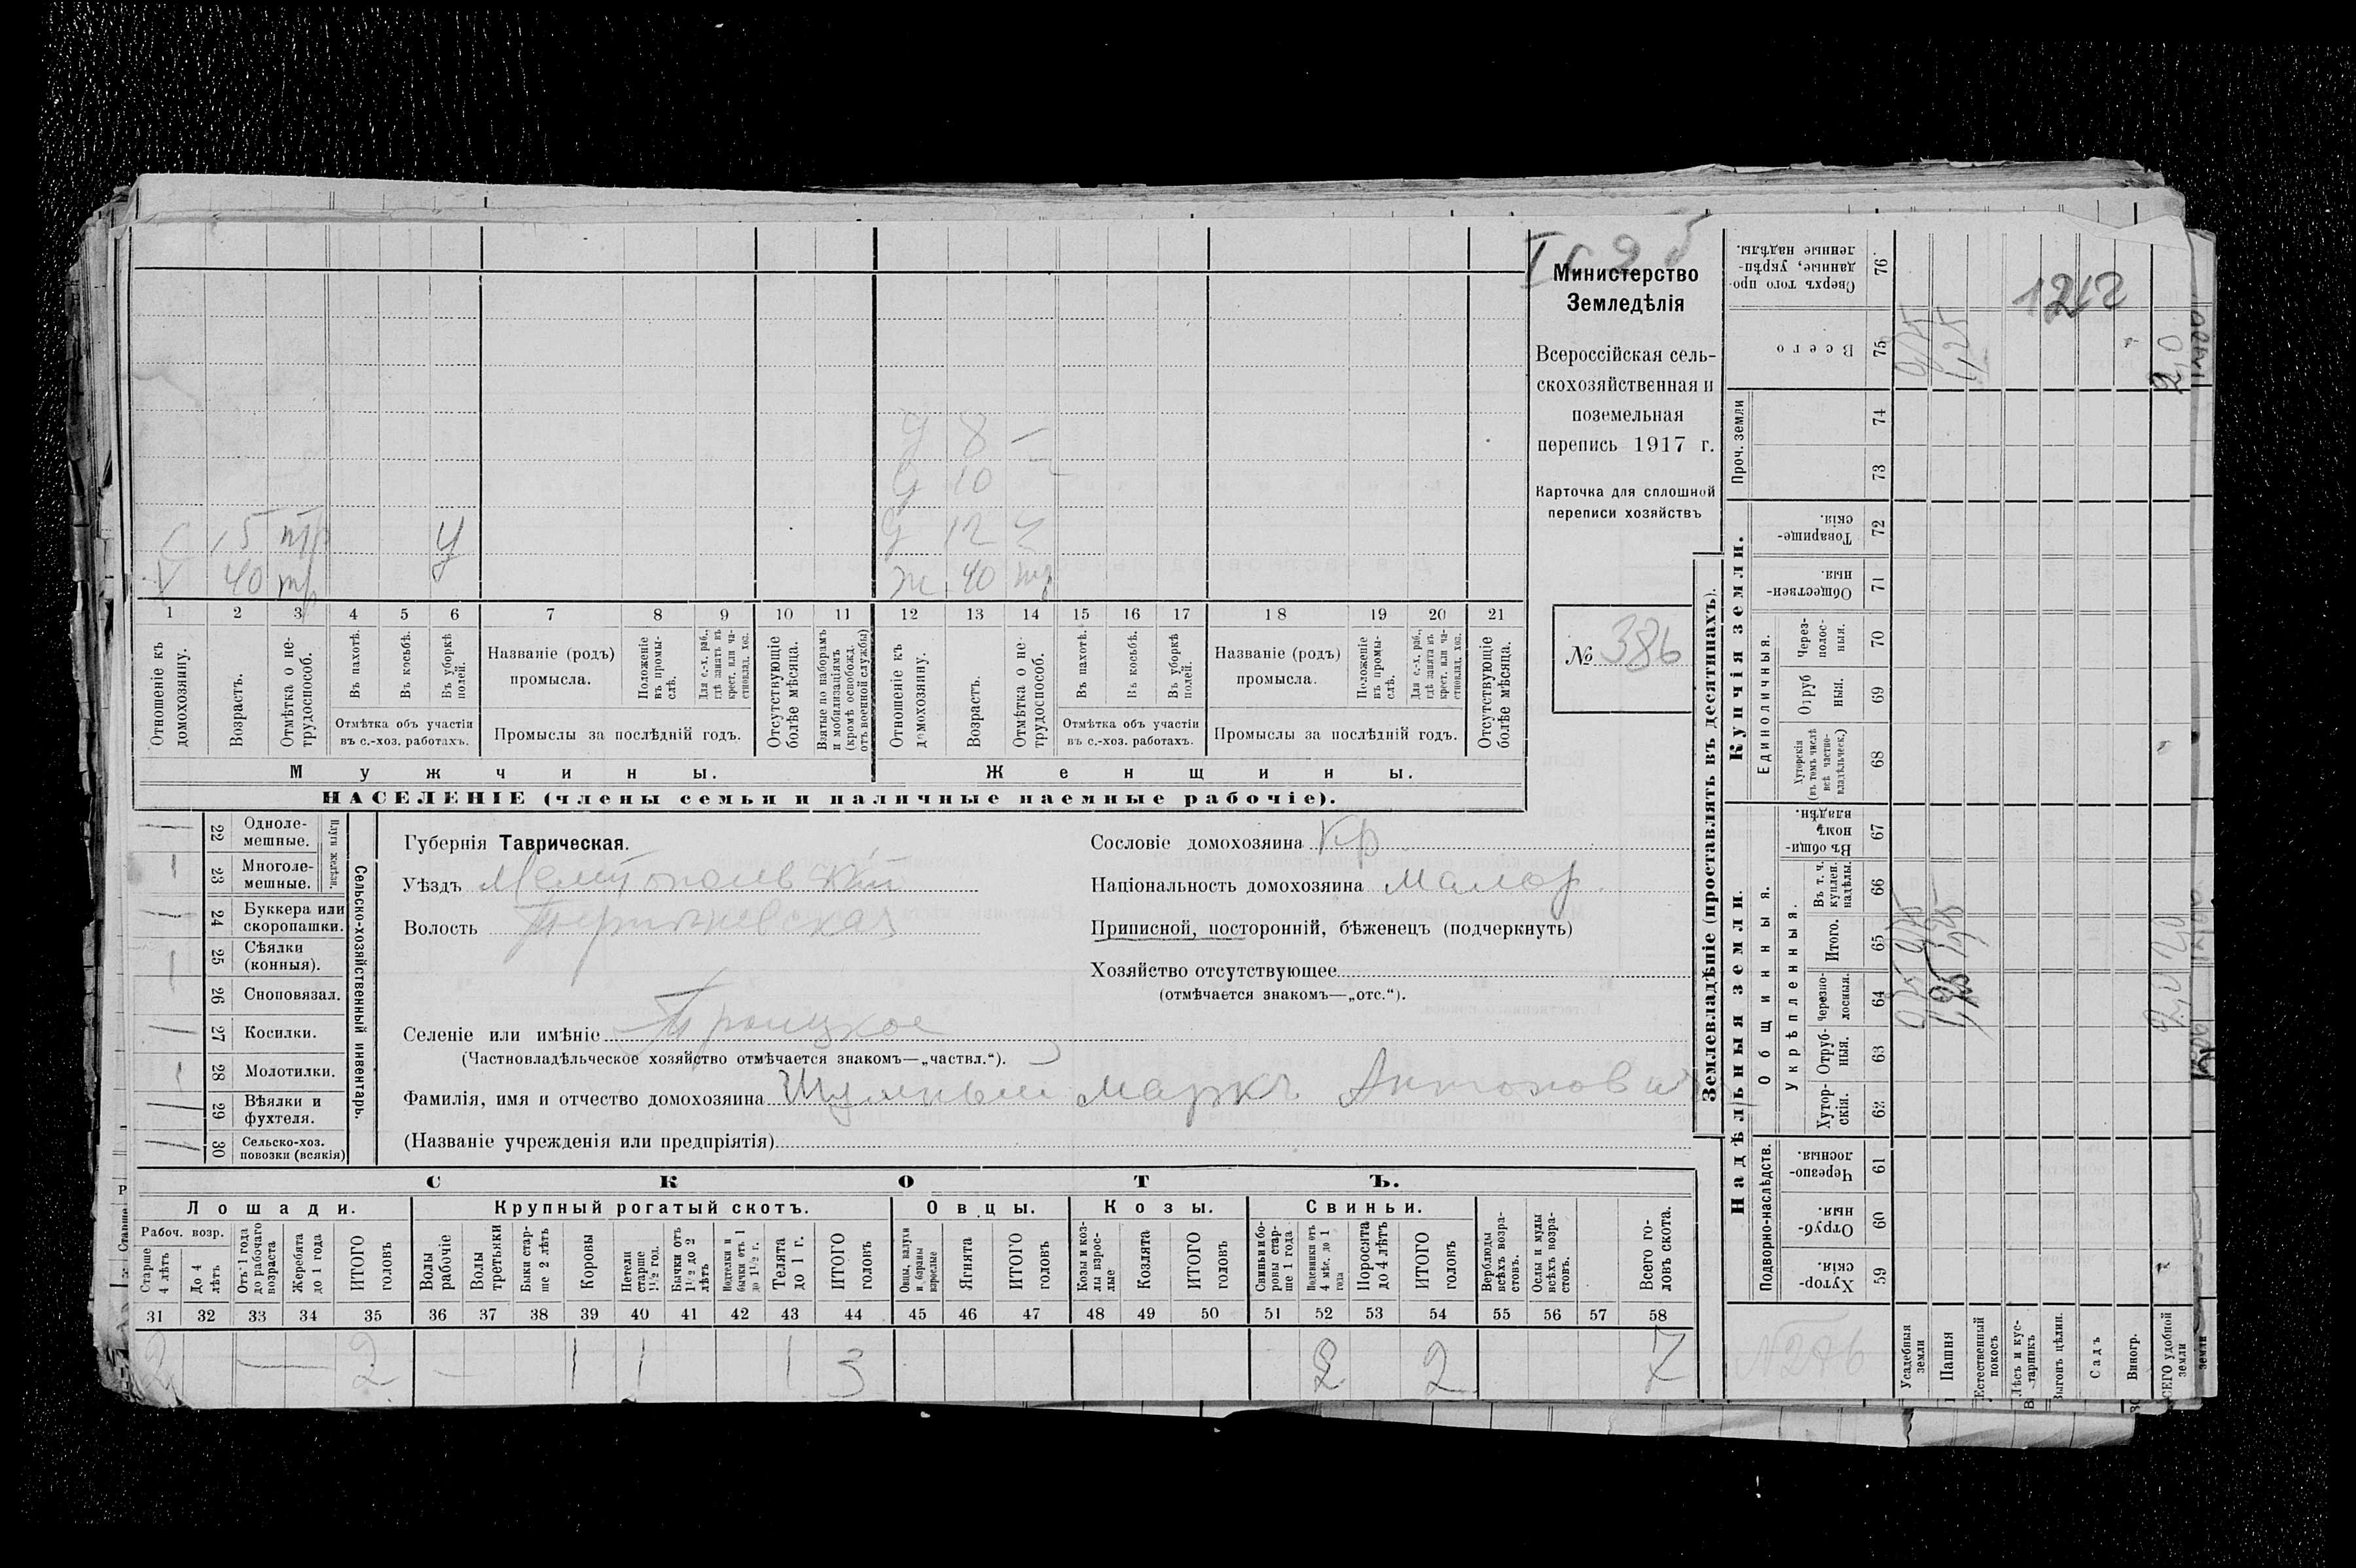 Министерство
Земледѣлія
Всероссійская сель-
скохозяйственная и
поземельная
перепись 1917 г.
Карточка для сплошной
переписи хозяйствъ
№ 386
У 8 —
10
12
15 тр У
40 тр ж 40 тр
1 2 3 4 5 6 7 8 9 10 11 12 13 14 15 16 17 18 19 20 21
Отношеніе къ домохозяину.
Возрастъ.
Отмѣтка о нетрудоспособ.
Въ пахотѣ.
Въ косьбѣ.
Въ уборкѣ полей.
Отмѣтка объ участіи
въ с.-хоз. работахъ.
Названіе (родъ)
промысла.
Положеніе въ промыслѣ.
Для с.-х. раб., гдѣ занятъ въ крест. или частновлад. хоз.
Промыслы за послѣдній годъ.
Отсутствующіе болѣе мѣсяца.
Взятые по наборамъ и мобилизаціямъ (кромѣ освобожд. отъ военной службы)
Отношеніе къ домохозяину.
Возрастъ.
Отмѣтка о нетрудоспособ.
Въ пахотѣ.
Въ косьбѣ.
Въ уборкѣ полей.
Отмѣтка объ участіи
въ с.-хоз. работахъ.
Названіе (родъ)
промысла.
Положеніе въ промыслѣ.
Для с.-х. раб., гдѣ занята въ крест. или частновлад. хоз.
Промыслы за послѣдній годъ.
Отсутствующіе болѣе мѣсяца.
Мужчины. Женщины.
НАСЕЛЕНІЕ (члены семьи и наличные наемные рабочіе).
22 Одноле-
мешные.
23 Многоле-
мешные.
Плуги желѣзн.
24 Буккера или
скоропашки.
25 Сѣялки
(конныя).
26 Сноповязал.
27 Косилки.
28 Молотилки.
29 Вѣялки и
фухтеля.
30 Сельско-хоз.
повозки (всякія)
Сельско-хозяйственный инвентарь.
Губернія Таврическая.
Уѣздъ Мелитопольскій
Волость
Селеніе или имѣніе Троицкое
(Частновладѣльческое хозяйство отмѣчается знакомъ—„частвл.“).
Фамилія, имя и отчество домохозяина Шумный Маркъ Антонови
(Названіе учрежденія или предпріятія)
Сословіе домохозяина Кр
Національность домохозяина Малор.
Приписной, посторонній, бѣженецъ (подчеркнуть)
Хозяйство отсутствующее
(отмѣчается знакомъ—„отс.“).
СКОТЪ.
Лошади. Крупный рогатый скотъ. Овцы. Козы. Свиньи.
Рабоч. возр.
Старше 4 лѣтъ
До 4 лѣтъ
Отъ 1 года до рабочаго возраста
Жеребята до 1 года
ИТОГО головъ
Волы рабочіе
Волы третьяки
Быки старше 2 лѣтъ
Коровы
Нетели старше 1½ год.
Бычки отъ 1½ до 2 лѣтъ
Нодтелки и бычки отъ 1 до 1½ г.
Телята до 1 г.
ИТОГО головъ
Овцы, валухи и бараны взрослые
Ягнята
ИТОГО головъ
Козы и козлы взрослые
Козлята
ИТОГО головъ
Свиньи и боровы старше 1 года
Подсвинки отъ 4 мѣс. до 1 года
Поросята до 4 лѣтъ
ИТОГО головъ
Верблюды всѣхъ возрастовъ.
Ослы и мулы всѣхъ возрастовъ.
Всего головъ скота.
31 32 33 34 35 36 37 38 39 40 41 42 43 44 45 46 47 48 49 50 51 52 53 54 55 56 57 58
2 — 2 — 1 1 1 3 2 2 7
Землевладѣніе (проставлять въ десятинахъ).
Надѣльныя земли. Купчія земли. Проч. земли
Подворно-наслѣдств.
Общинныя.
Укрѣпленныя.
Единоличныя.
Хуторскія. 59
Отрубныя. 60
Черезполосныя. 61
Хуторскія. 62
Отрубныя. 63
Черезполосныя. 64
Итого. 65
Въ т. ч. куплен. надѣлы. 66
Въ общинномъ владѣн. 67
Хуторскія (въ томъ числѣ всѣ частновладѣльческ.) 68
Отрубныя. 69
Черезполосныя. 70
Общественныя. 71
Товарищескія. 72
73
74
Всего 75
Сверхъ того проданные, укрѣпленные надѣлы. 76
Усадебныя земли
Пашня
Естественный покосъ
Лѣсъ и кустарникъ
Выгонъ цѣлин.
Садъ
Виногр.
ВСЕГО удобной земли
1,25
1,25
1,25
1212
2,0
2,0
2,0